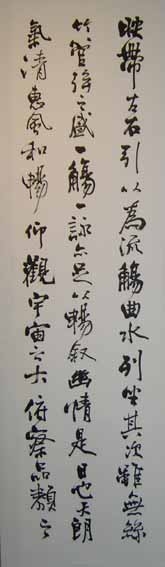 映帶左右引以為流觴曲水列坐其次雖無絲
竹管弦之盛一觴一詠亦足以暢敘幽情是日也天朗
氣清惠風和暢仰觀宇宙之大俯察品類之